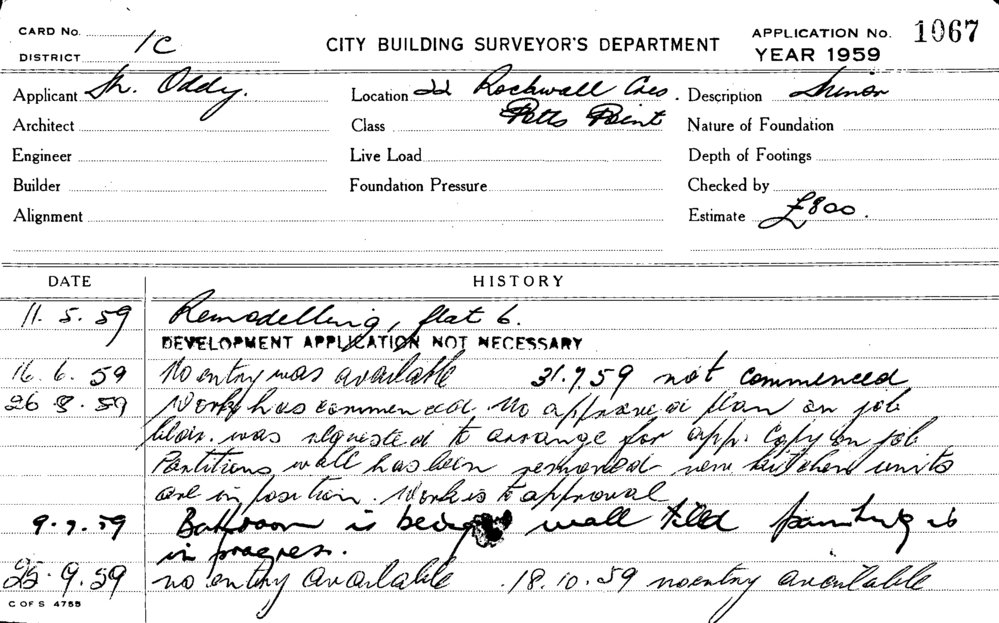 CARD No.
DISTRICT 1C
CITY BUILDING SURVEYOR'S DEPARTMENT
APPLICATION No. 1067
YEAR 1959
Applicant Oddy. Location 22 Rockwall Cres. Description Minor
Architect Class Potts Point Nature of Foundation
Engineer Live Load Depth of Footings
Builder Foundation Pressure Checked by
Alignment Estimate £800.
DATE HISTORY
11.5.59 Remodelling, flat 6.
DEVELOPMENT APPLICATION NOT NECESSARY
16.6.59 No entry was available 31.7.59 not commenced
26.8.59 Work has commenced. No approved plan on job
was requested to arrange for app. copy on job
Partitions wall has been removed new kitchen units
are in position. Work is to approval
9.9.59 Bathroom is being wall tiled painting is
in progress.
25.9.59 no entry available 18.10.59 no entry available
C OF S 4755